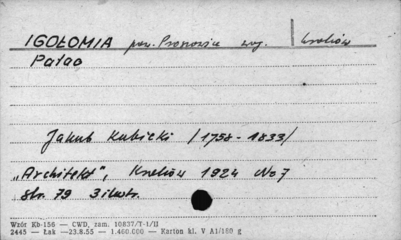 IGOŁOMIA pow. Proszowice woj. Kraków
Pałac
Jakub Kubicki /1758 - 1833/
„Architekt", Kraków 1924 No 7
str. 79 3 ilustr.
Wzór Kb-156 — CWD, zam. 10837/T-1/II
2445 — Łak. —23.8.55 — 1.460.000 — Karton kl. V A1/160 g